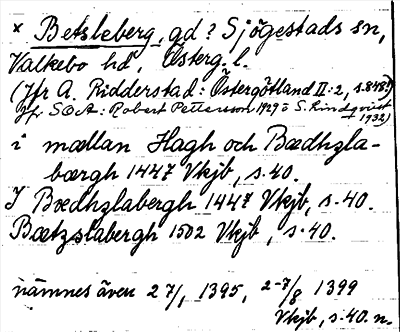 × Betsleberg, gd? Sjögestads sn,
Valkebo hd, Österg. l.
(Jfr A. Ridderstad: Östergötland II:2, s.848?)
Jfr SOA: Robert Pettersson 1929 o S. Rindqvist
1932)
i mællan Hagh och Bædhzla-
bærgh 1447 Vkjb, s.40.
J Bædhzlabergh 1447 Vkjb, s.40.
Bætzslabergh 1502 Vkjb, s.40.
nämnes även 27/1 1395, 2-7/8 1399
Vkjb, s.40.n.